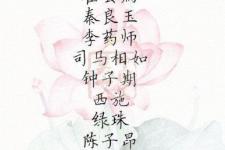 秦良玉
李药师
司马相如
钟子期
西施
绿珠
陈子昂